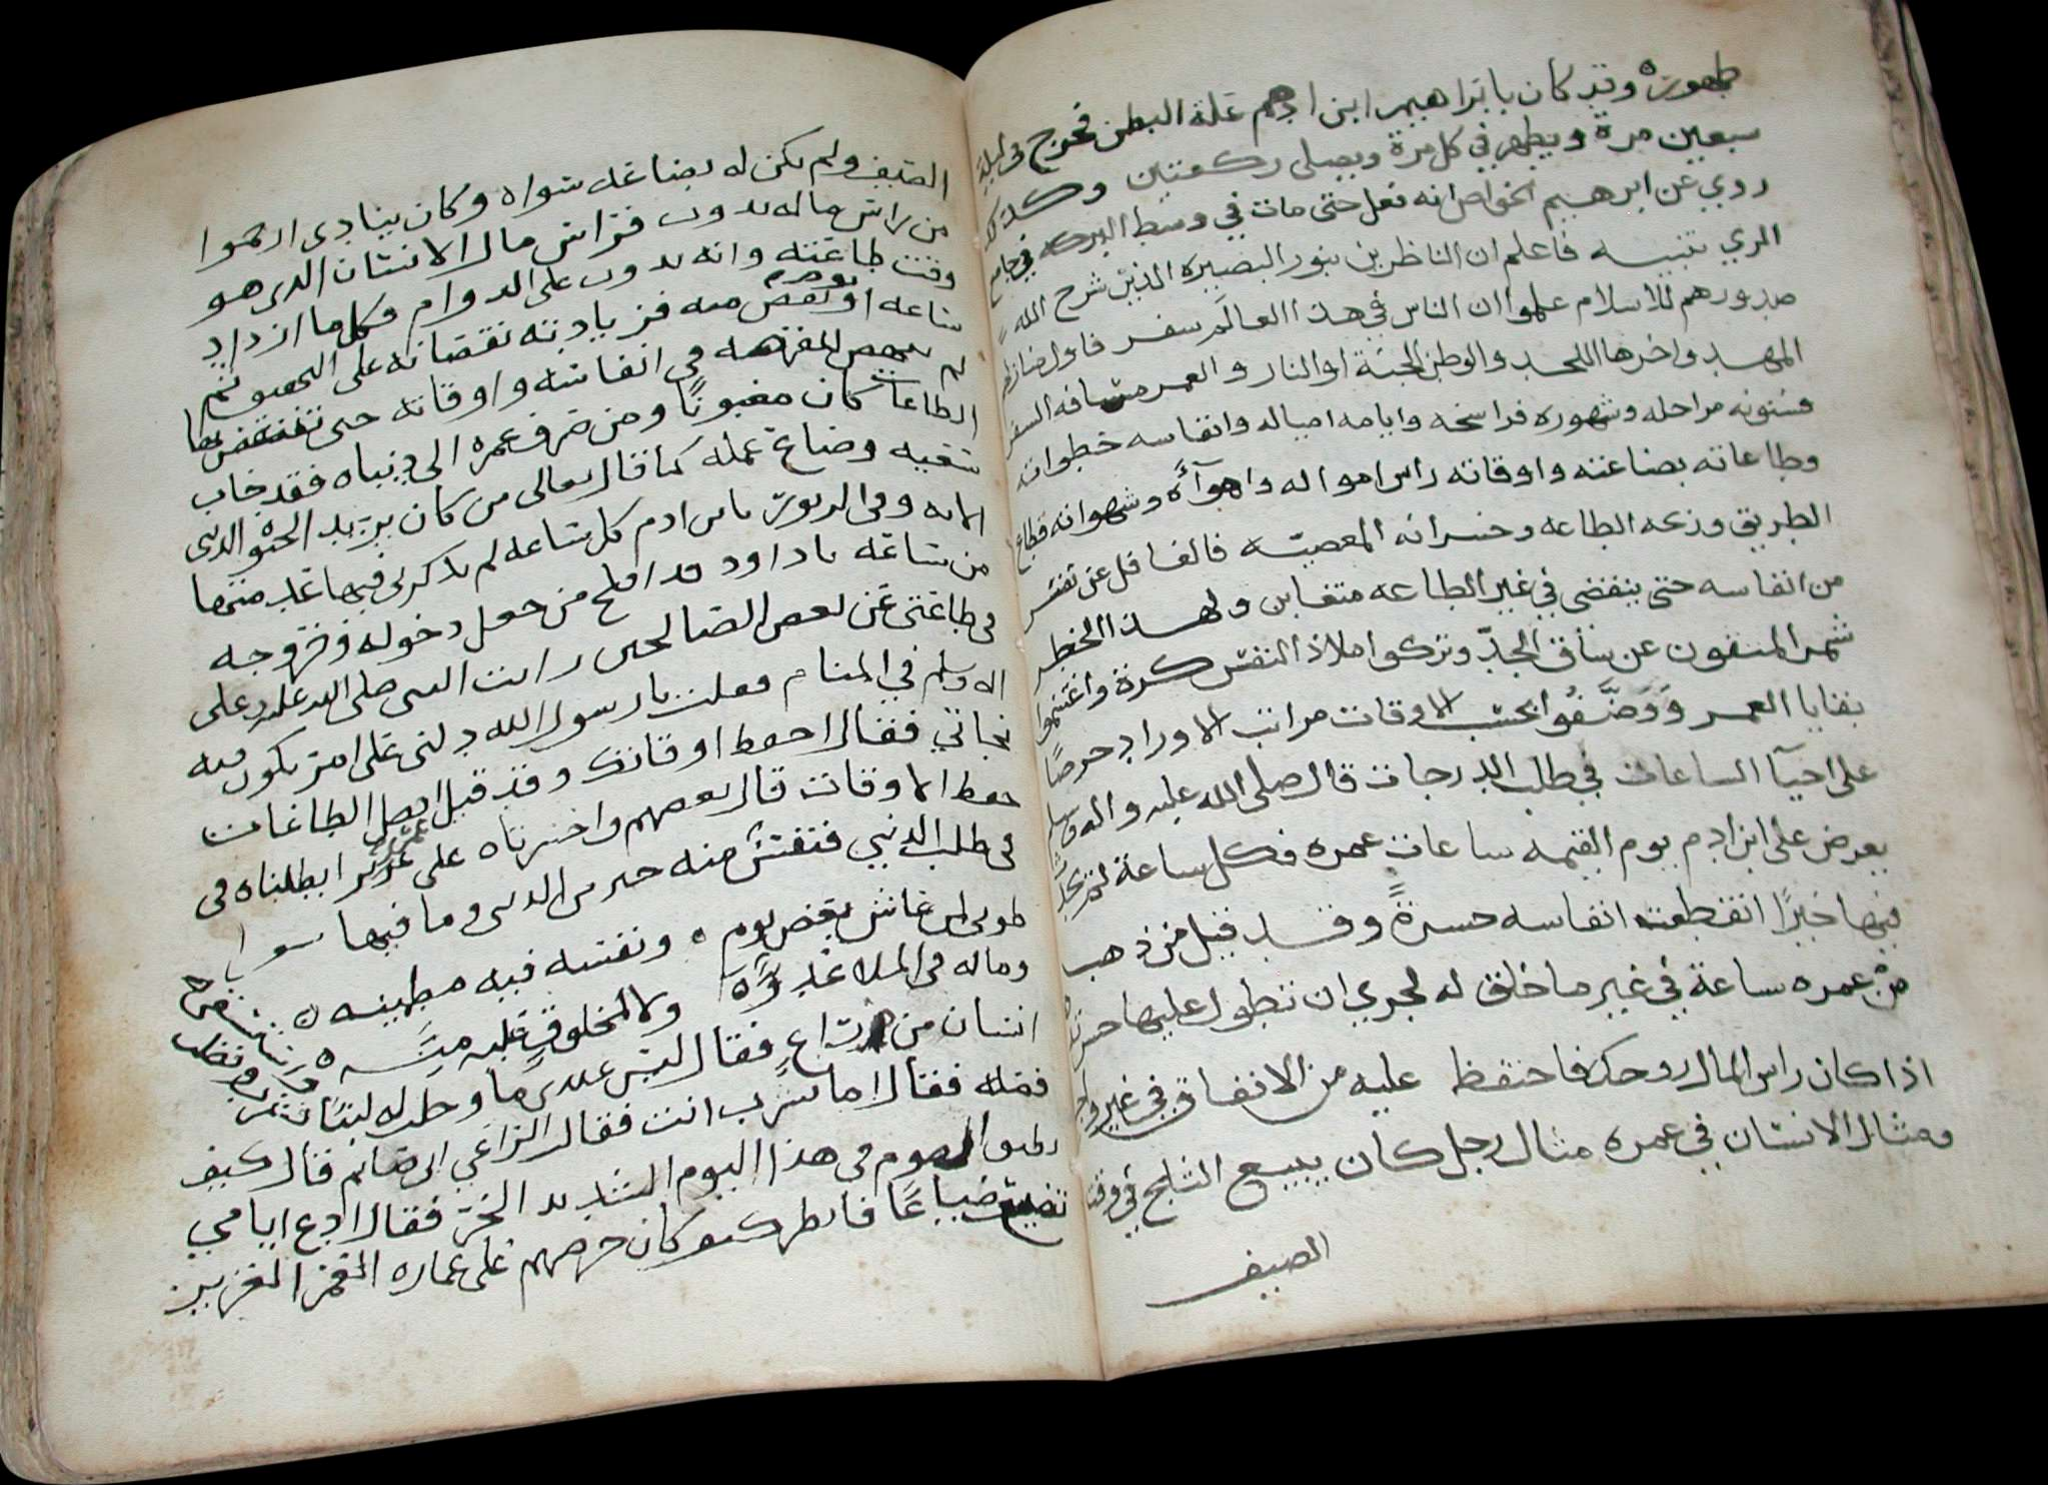 طهوره وقد كان بابراهيم ابن ادهم علة البطن فخرج في ليلة
سبعين مرة ويطهر في كل مرة ويصلي ركعتين وكذلك
روي عن ابرهيم الخواص انه فعل حتى مات في وسط البركه في جامع
الري تنبيه فاعلم ان الناظرين بنور البصيره الذين شرح الله
صدورهم للاسلام علموا ان الناس في هذا العالم سفر فاول منازلهم
المهد واخرها اللحد والوطن الجنة او النار والعمر مسافه السفر
فسنونه مراحله وشهوره فراسخه وايامه امياله وانفاسه خطواته
وطاعاته بضاعته واوقاته راس امواله واهوآؤه وشهواته قطاع
الطريق وربحه الطاعه وخسرانه المعصيه فالغافل عن نفس
من انفاسه حتى ينقضي في غير الطاعه متغابن ولهذا الخطر
شمر المتقون عن ساق الجدّ وتركوا ملاذ النفس كرة واغتنموا
بقايا العمر ووضّفوا بحسب الاوقات مراتب الاوراد حرصًا
على احيآ الساعات في طلب الدرجات قال صلى الله عليه واله وسلم
يعرض على ابن ادم يوم القيمه ساعات عمره فكل ساعة لم
فيها خيرًا انقطعت انفاسه حسرةً وقد قيل من ذهب
من عمره ساعة في غير ما خلق له لجري ان تطول عليها حسرته
اذا كان راس المال روحك فاحتفظ عليه من الانفاق في غير واجب
ومثال الانسان في عمره مثال رجل كان يبيع الثلج في وقت
الصيف
الصيف ولم يكن له بضاعه سواه وكان ينادي ارحموا
من راس ماله يذوب فراس مال الانسان الذي هو
وقت طاعته وانه يذوب على الدوام فكل ما ازداد
ساعه او يوم نقص منه فزيادته نقصانه على التحقيق فمن
لم الفرصه في انفاسه واوقاته حتى بها
الطاعات كان مغبونًا ومن صرف عمره الى دنياه فقد خاب
سعيه وضاع عمله كما قال تعالى من كان يريد الحيوة الدنيا
الايه وفي الزبور يابن ادم كل ساعه لم تذكرني فيها عدمتها
من ساعه يا داود قد افلح من جعل دخوله وخروجه
في طاعتي عن بعض الصالحين رايت النبي صلى الله عليه وعلى
اله وسلم في المنام فقلت يارسول الله دلني على امر يكون فيه
نجاتي فقال احفظ اوقاتك وقد قيل افضل الطاعات
حفظ الاوقات قال بعضهم واحسرتاه على عمر ابطلناه في
في طلب الدنيا فنفس منه خير من الدنيا وما فيها سوا
طوبى لمن عاش بعض يوم ونفسه فيه مطمينه
وماله في الملا عدوّ ولا لمخلوقٍ عليه منّه
انسان من راعٍ فقال ليس عندي ما وحلب له لبنًا
فقال اما تشرب انت فقال الراعي اني صايم قال كيف
تطيق الصوم في هذا اليوم الشديد الحرّ فقال ادع ايامي
تضيع ضياعًا فانظر كيف كان حرصهم على عماره العمر العزيز